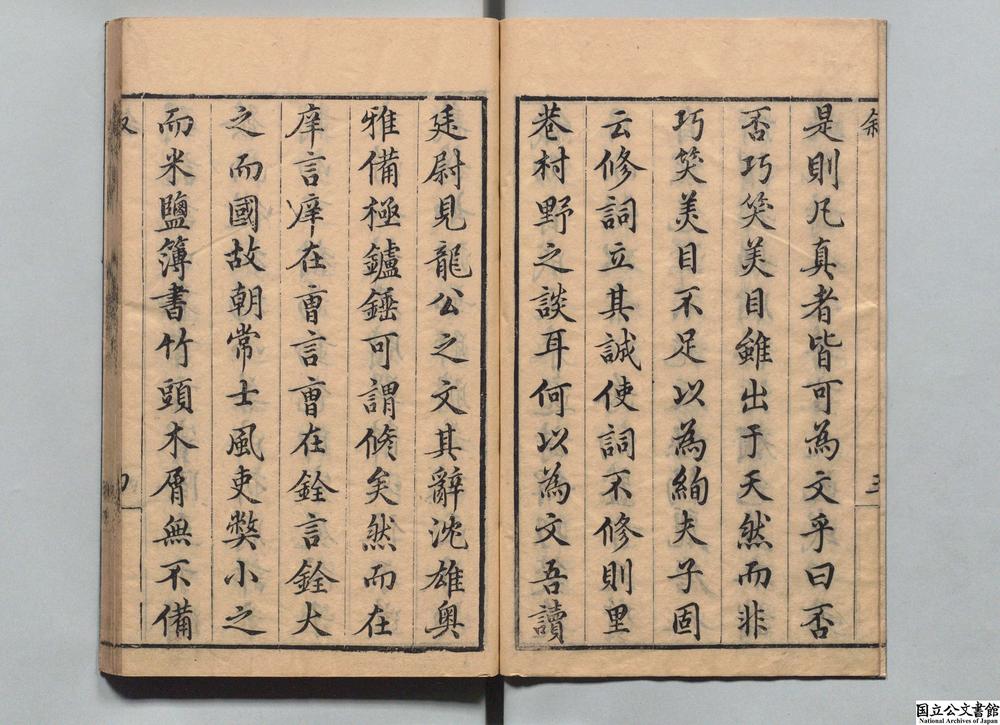 是則凡真者皆可為文乎曰否
否巧笑美目雖出于天然而非
巧笑美目不足以為絢夫子固
云修詞立其誠使詞不修則里
巷村野之談耳何以為文吾讀
廷尉見龍公之文其辭沈雄奧
雅備極鑪錘可謂修矣然而在
庠言庠在曹言曹在銓言銓大
之而國故朝常士風吏弊小之
而米鹽簿書竹頭木屑無不備
国立公文書館
National Archives of Japan